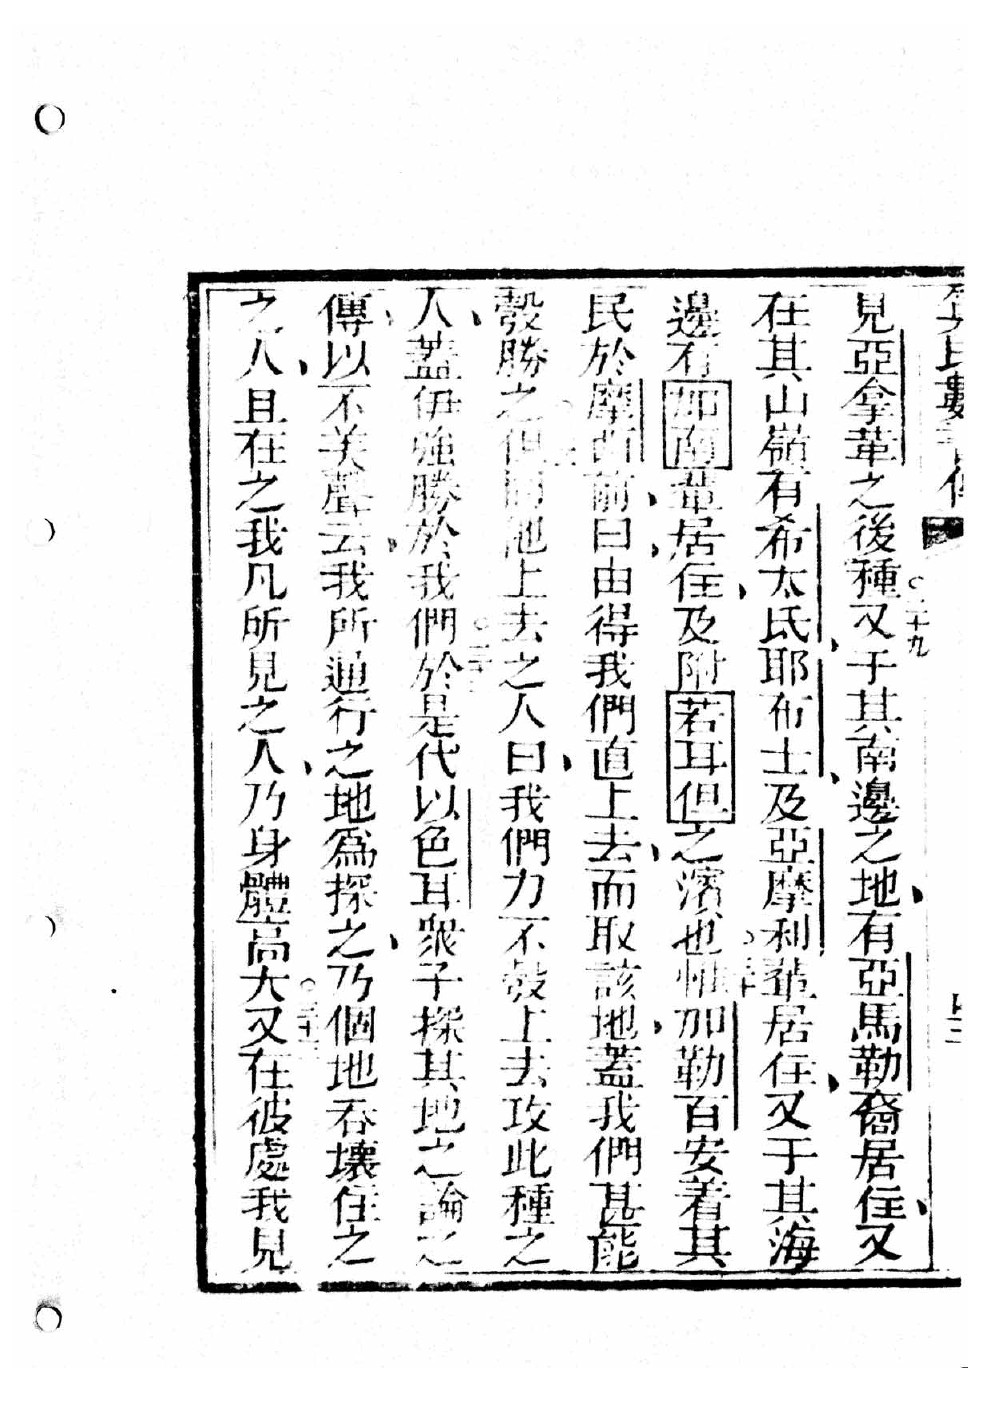 見亞拿輩之後種又于其南邊之地有亞馬勒裔居住又
在其山嶺有希太氏耶布士及亞摩利輩居住又于其海
邊有加南輩居住及附若耳但之濱也惟加勒百安着其
民於摩西前曰由得我們直上去而取該地蓋我們甚能
彀勝之但同他上去之人曰我們力不彀上去攻此種之
人蓋伊強勝於我們於是代以色耳衆子探其地之論之
傳以不美聲云我所通行之地爲探之乃個地吞壞住之
之人且在之我凡所見之人乃身體高大又在彼處我見
二十九
三十